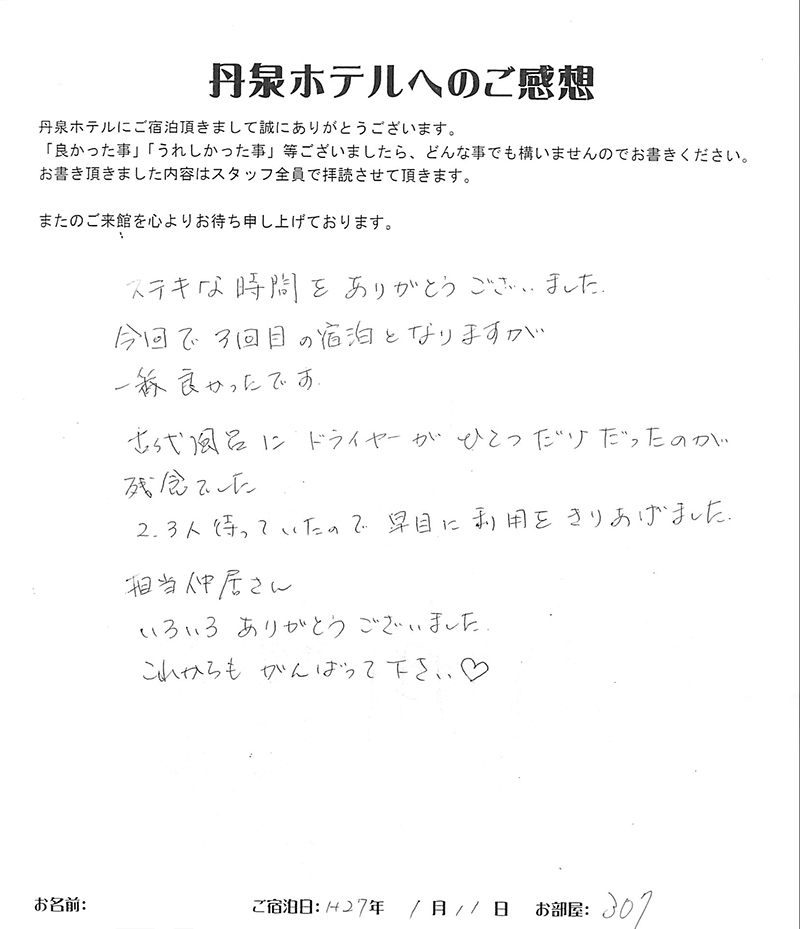 丹泉ホテルへのご感想
丹泉ホテルにご宿泊頂きまして誠にありがとうございます。
「良かった事」「うれしかった事」等ございましたら、どんな事でも構いませんのでお書きください。
お書き頂きました内容はスタッフ全員で拝読させて頂きます。
またのご来館を心よりお待ち申し上げております。
ステキな時間をありがとうございました.
今回で3回目の宿泊となりますが
一番良かったです.
古代風呂にドライヤーがひとつだけだったのが
残念でした
2.3人待っていたので早目に利用をきりあげました.
担当仲居さん
いろいろありがとうございました.
これからもがんばって下さい♡
お名前: ご宿泊日: H27年 1月11日 お部屋: 307